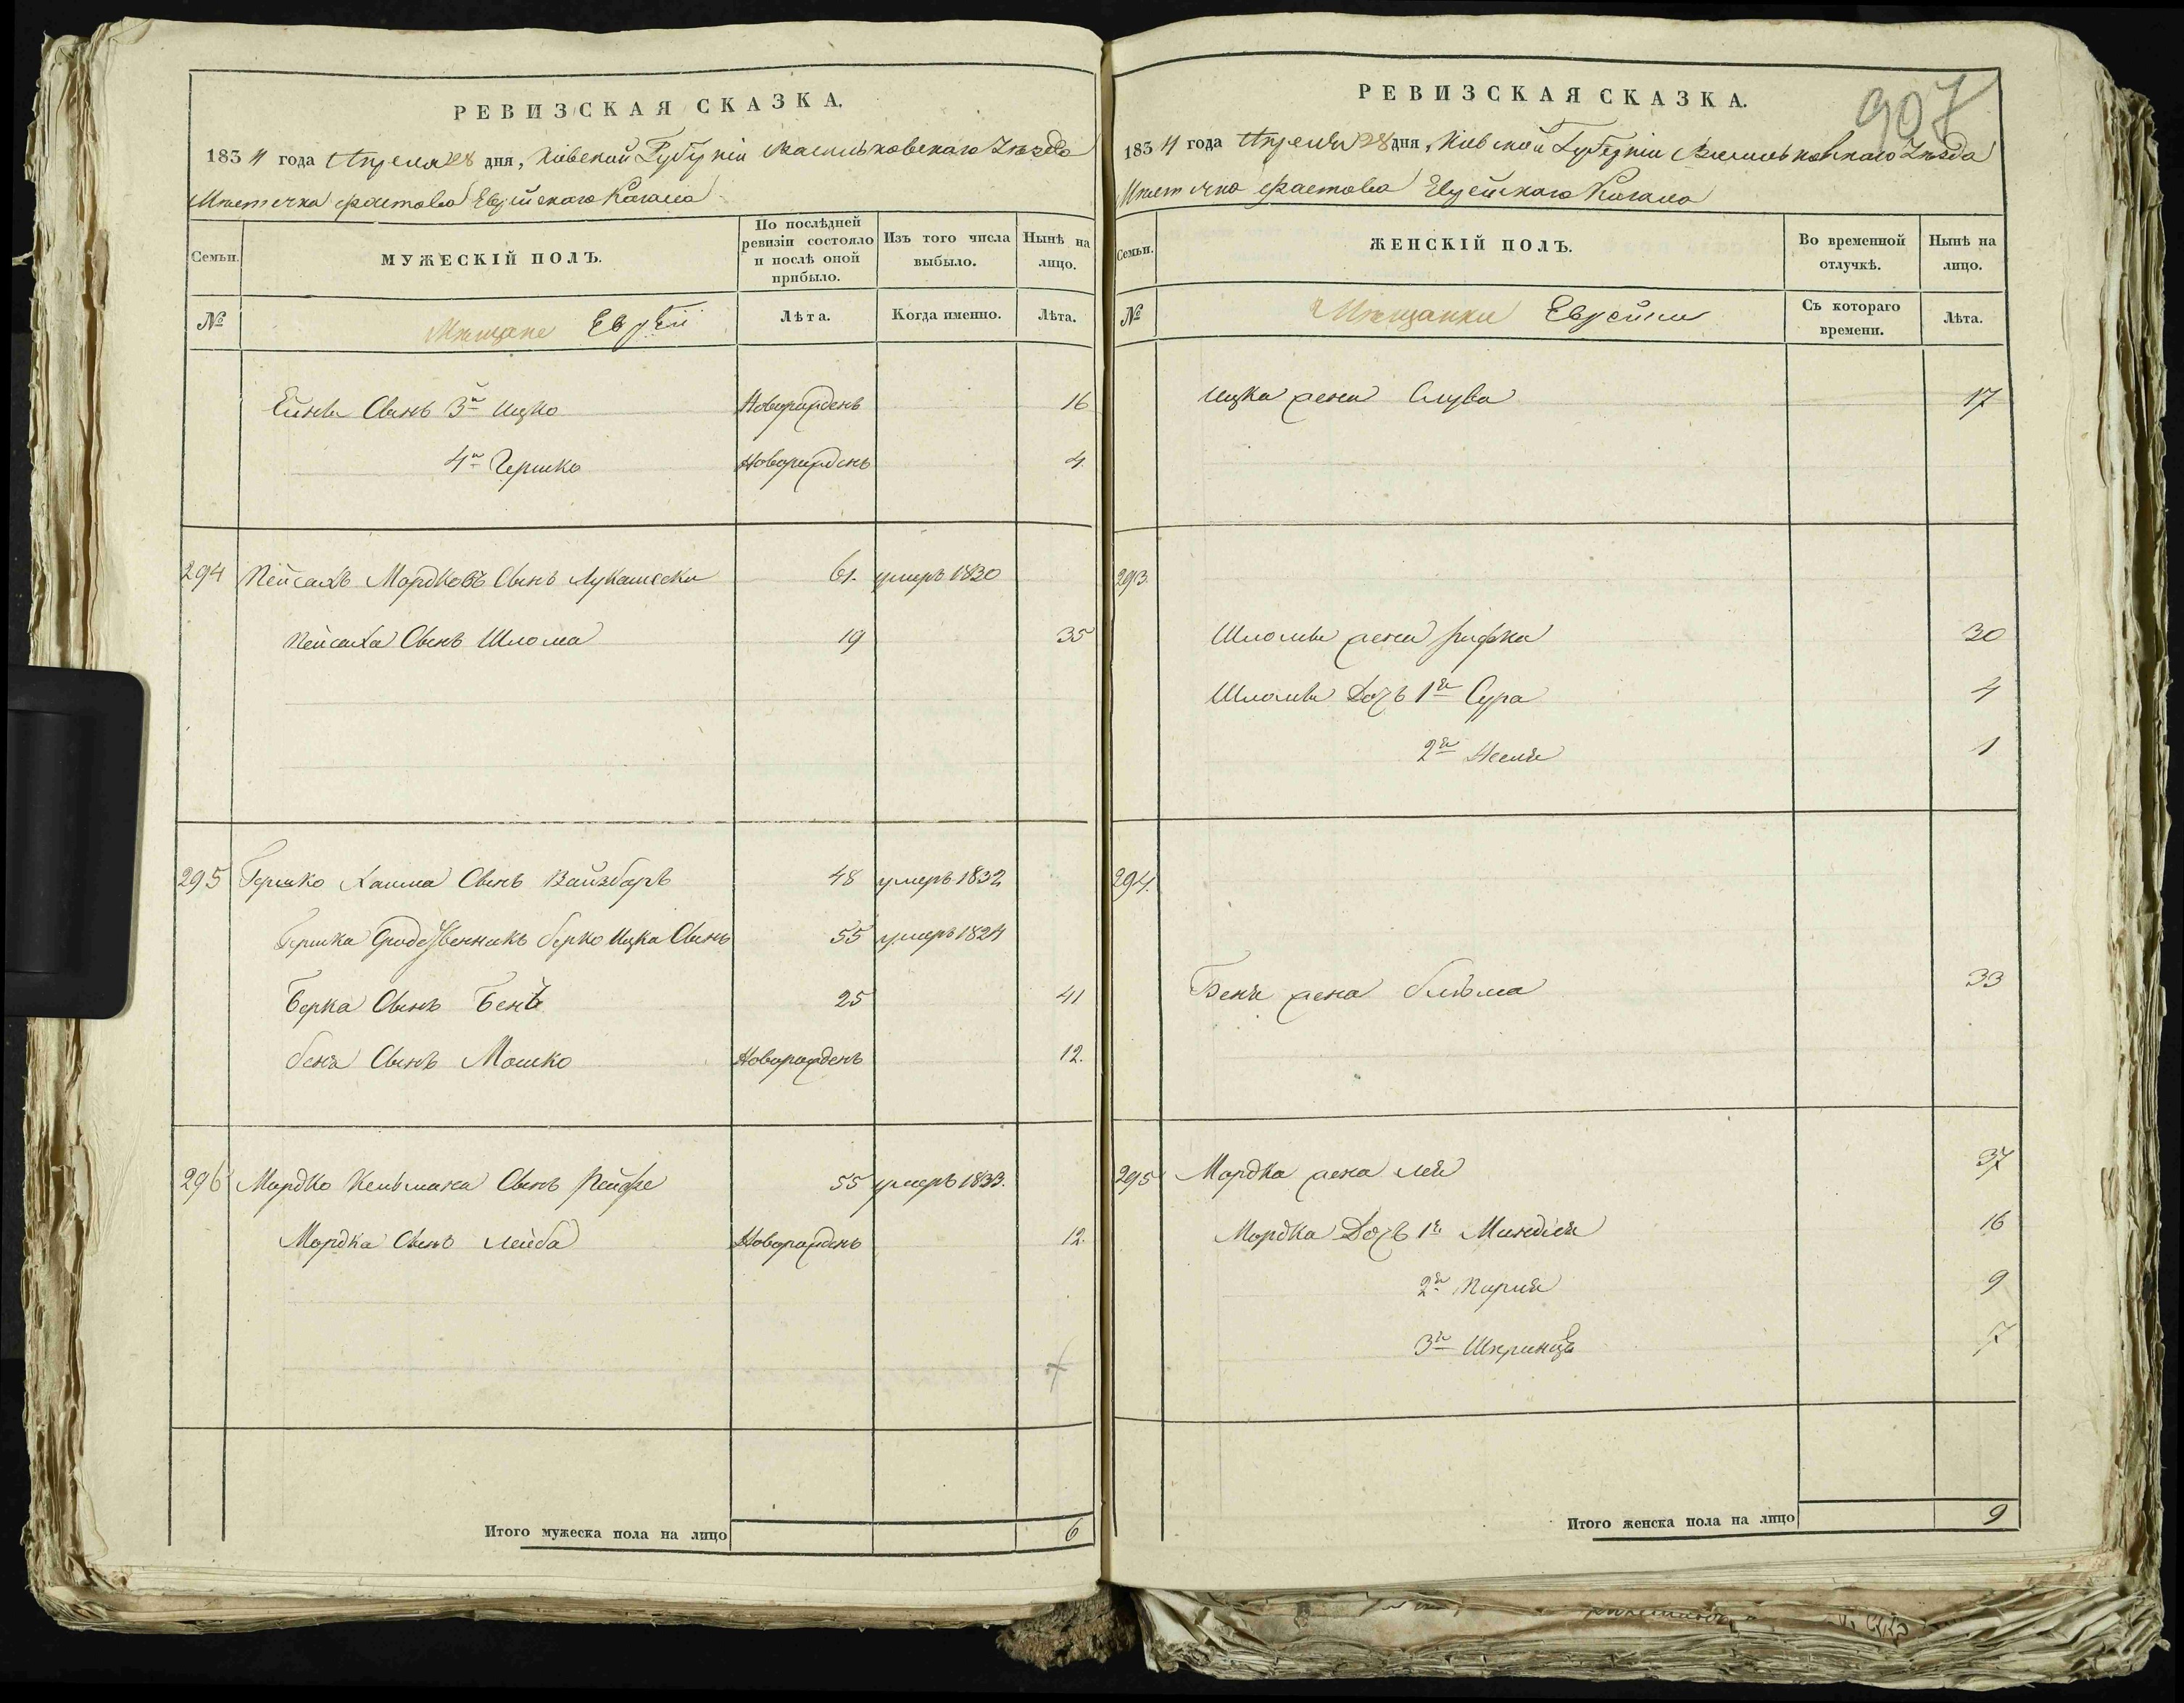 РЕВИЗСКАЯ СКАЗКА.
1834 года Апреля 28 дня, Кіевской Губерніи Васильковскаго Уѣзда
Мѣстечка Фастова Еврейскаго Кагала
Семьи.
МУЖЕСКІЙ ПОЛЪ.
По послѣдней ревизіи состояло и послѣ оной прибыло.
Изъ того числа выбыло.
Нынѣ на лицо.
№
Мѣщане Еврѣи
Лѣта.
Когда именно.
Лѣта.
Сынъ 3й Ицко Новорожденъ 16
4й Гершко Новорожденъ 4
294 Пейсахъ Мордковъ Сынъ 61. умеръ 1830
Пейсаха Сынъ Шлома 19 35
295 Гершко Хаима Сынъ Вайзбаръ 48 умеръ 1832
Гершка Сродственникъ Берко Ицка Сынъ 55 умеръ 1824
Берка Сынъ Бенѣ 25 41
Беня Сынъ Мошко Новорожденъ 12.
296 Мордко Кельмана Сынъ 55 умеръ 1833.
Мордка Сынъ Лейба Новорожденъ 12.
Итого мужеска пола на лицо 6
907
РЕВИЗСКАЯ СКАЗКА.
1834 года Апреля 28 дня, Кіевской Губерніи Васильковскаго Уѣзда
Мѣстечка Фастова Еврейскаго Кагала
Семьи.
ЖЕНСКІЙ ПОЛЪ.
Во временной отлучкѣ.
Нынѣ на лицо.
№
Мѣщанки Еврейки
Съ котораго времени.
Лѣта.
Ицка жена Слува 17
293.
Шломы жена Рифка 30
Шломы Дочь 1я Сура 4
2я 1
294.
Беня жена Блюма 33
295 Мордка жена Лея 37
Мордка Дочь 1я Миндля 16
2я Перля 9
3я Шпринца 7
Итого женска пола на лицо 9